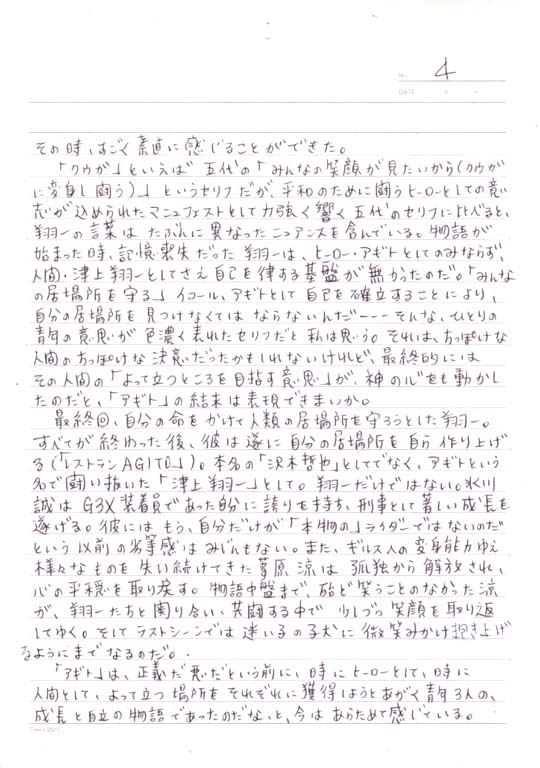 No. 4
DATE
その時、すごく素直に感じることができた。
「クウガ」といえば 五代の「みんなの笑顔が見たいから(クウガ
に変身し闘う)」というセリフだが、平和のために闘うヒーローとしての意
志が込められたマニュフェストとして力強く響く五代のセリフに比べると、
翔一の言葉は たぶんに異なったニュアンスを含んでいる。物語が
始まった時、記憶喪失だった翔一は、ヒーロー・アギトとしてのみならず、
人間・津上翔一としてさえ自己を律する基盤が無かったのだ。「みんな
の居場所を守る」イコール、アギトとして自己を確立することにより、
自分の居場所を見つけなくては ならないんだ―――そんな、ひとりの
青年の意思が色濃く表れたセリフだと私は思う。それは、ちっぽけな
人間のちっぽけな決意だったかもしれないけれど、最終的には
その人間の「よって立つところを目指す意思」が、神の心をも動かし
たのだと、「アギト」の結末は表現できまいか。
最終回、自分の命をかけて人類の居場所を守ろうとした翔一。
すべてが終わった後、彼は遂に自分の居場所を自ら作り上げ
る(「レストランAGITO」)。本名の「沢木哲也」としてでなく、アギトという
名で闘い抜いた「津上翔一」として。翔一だけではない。氷川
誠は G3X装着員であった自分に誇りを持ち、刑事として著しい成長を
遂げる。彼にはもう、自分だけが「本物の」ライダーではないのだ
という以前の劣等感はみじんもない。また、ギルスへの変身能力ゆえ
様々なものを失い続けてきた葦原涼は孤独から解放され、
心の平穏を取り戻す。物語中盤まで、殆ど笑うことのなかった涼
が、翔一たちと関り合い、共闘する中で 少しづつ笑顔を取り返
してゆく。そしてラストシーンでは迷い子の子犬に微笑みかけ抱き上げ
るようにまでなるのだ。
「アギト」は、正義だ悪だという前に、時にヒーローとして、時に
人間として、よって立つ場所をそれぞれに獲得しようとあがく青年3人の、
成長と自立の物語であったのだな、と、今はあらためて感じている。